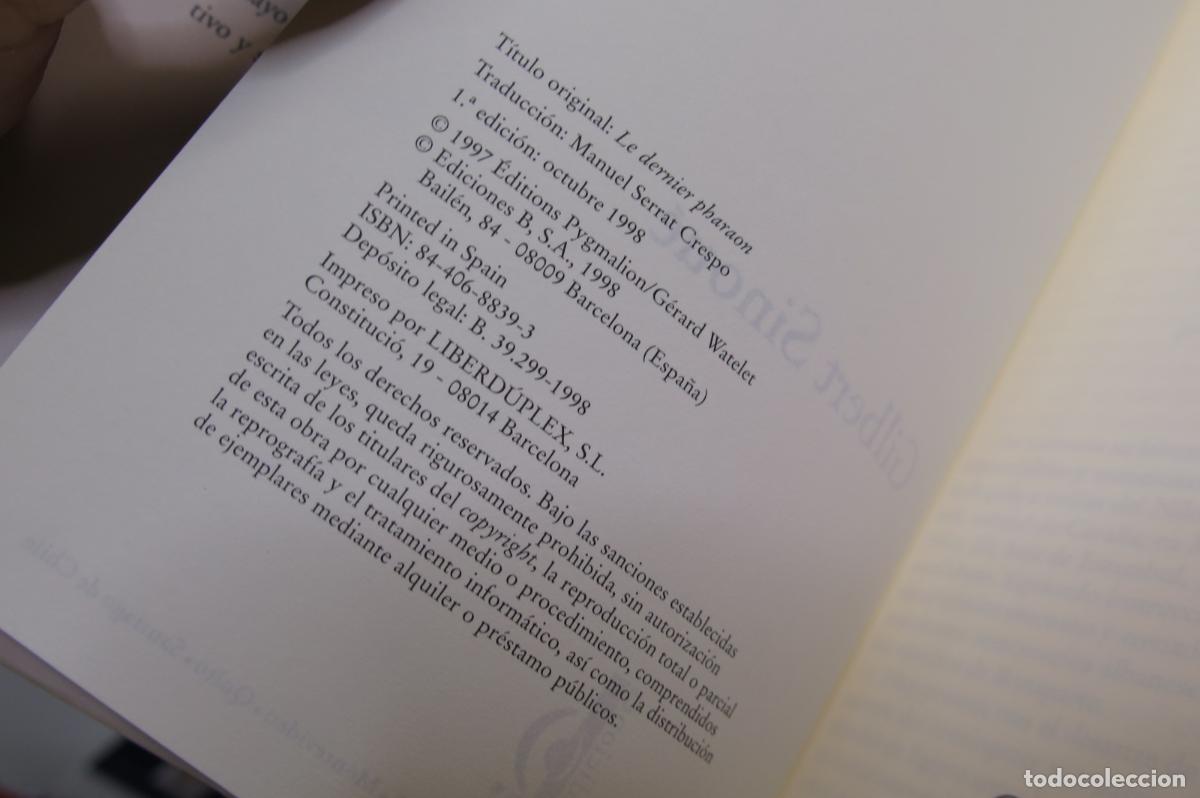 tivo y
Título original: Le dernier pharaon
Traducción: Manuel Serrat Crespo
1.ª edición: octubre 1998
© 1997 Éditions Pygmalion/Gérard Watelet
© Ediciones B, S.A., 1998
Bailén, 84 - 08009 Barcelona (España)
Printed in Spain
ISBN: 84-406-8839-3
Depósito legal: B. 39.299-1998
Impreso por LIBERDÚPLEX, S.L.
Constitució, 19 - 08014 Barcelona
Todos los derechos reservados. Bajo las sanciones establecidas
en las leyes, queda rigurosamente prohibida, sin autorización
escrita de los titulares del copyright, la reproducción total o parcial
de esta obra por cualquier medio o procedimiento, comprendidos
la reprografía y el tratamiento informático, así como la distribución
de ejemplares mediante alquiler o préstamo públicos.
Gilbert Sinoué
Montevideo • Quito • Santiago de Chile
todocoleccion